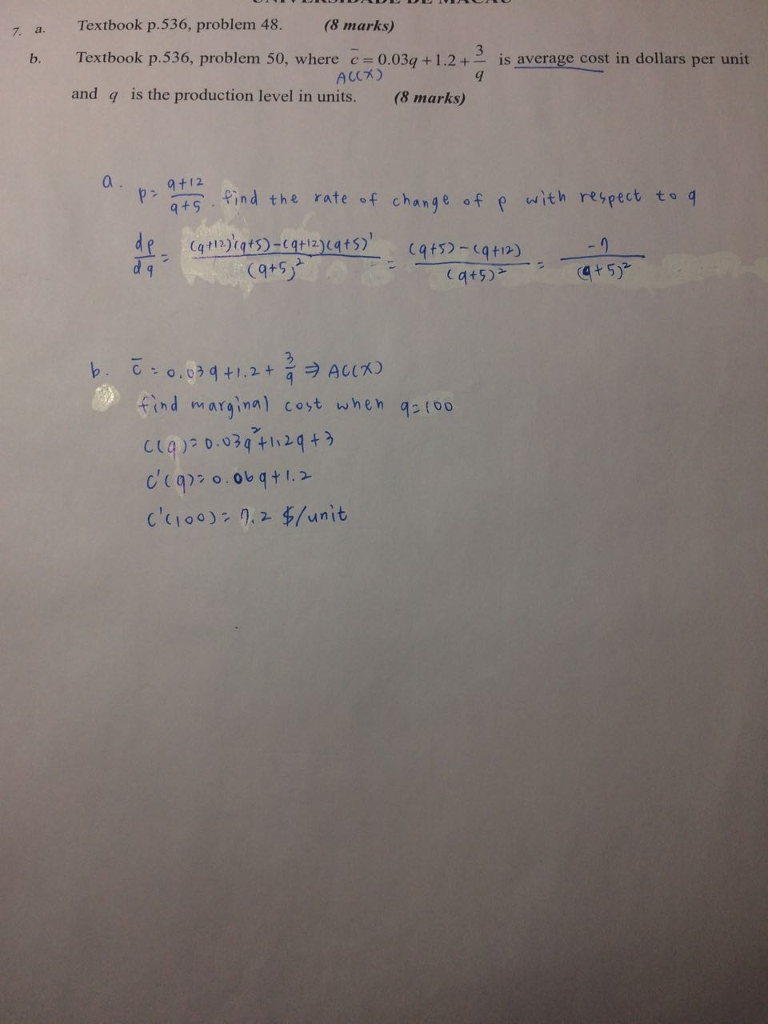 UNIVERSIDADE DE MACAU
7. a. Textbook p.536, problem 48. (8 marks)
b. Textbook p.536, problem 50, where c̅ = 0.03q + 1.2 + 3/q is average cost in dollars per unit
AC(X)
and q is the production level in units. (8 marks)
a. p = (q+12)/(q+5) . find the rate of change of p with respect to q
dp/dq = ((q+12)'(q+5)-(q+12)(q+5)')/(q+5)² = ((q+5)-(q+12))/(q+5)² = -7/(q+5)²
b. c̅ = 0.03q+1.2+ 3/q ⇒ AC(X)
find marginal cost when q=100
C(q)= 0.03q²+1.2q+3
C'(q)= 0.06q+1.2
C'(100)= 7.2 $/unit